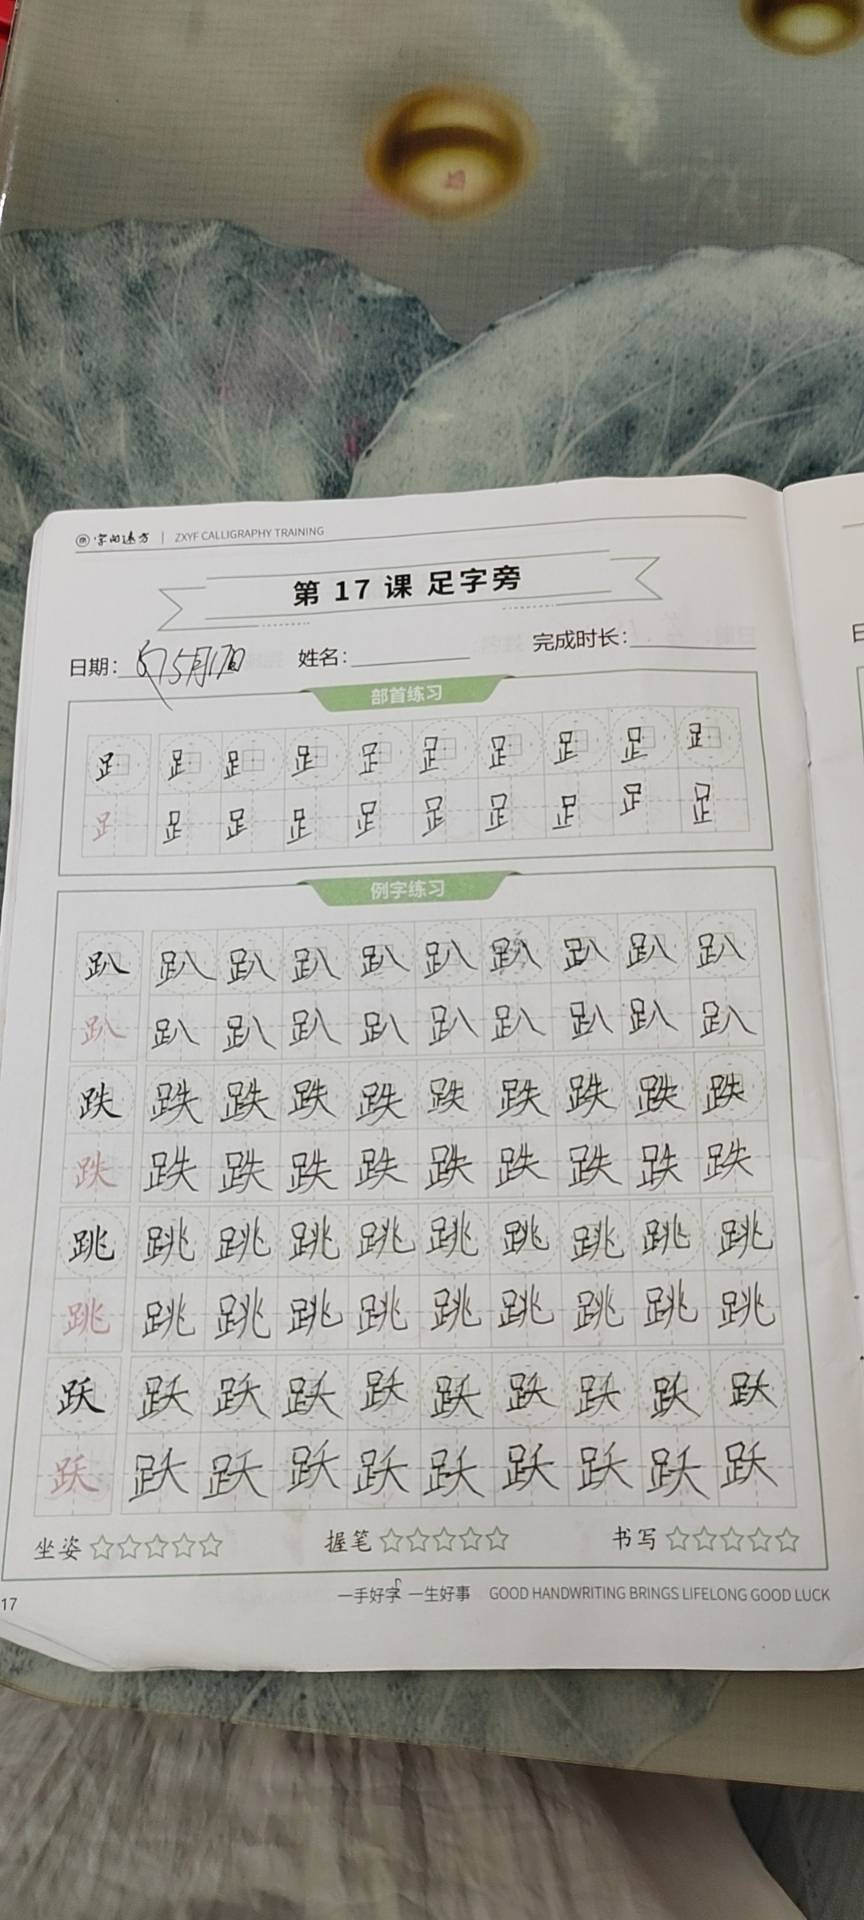 字向远方 | ZXYF CALLIGRAPHY TRAINING
第 17 课 足字旁
日期： 5月1 姓名： 完成时长：
部首练习
𧾷 𧾷 𧾷 𧾷 𧾷 𧾷 𧾷 𧾷 𧾷 𧾷
𧾷 𧾷 𧾷 𧾷 𧾷 𧾷 𧾷 𧾷 𧾷 𧾷
例字练习
趴 趴 趴 趴 趴 趴 趴 趴 趴 趴
趴 趴 趴 趴 趴 趴 趴 趴 趴 趴
跌 跌 跌 跌 跌 跌 跌 跌 跌 跌
跌 跌 跌 跌 跌 跌 跌 跌 跌 跌
跳 跳 跳 跳 跳 跳 跳 跳 跳 跳
跳 跳 跳 跳 跳 跳 跳 跳 跳 跳
跃 跃 跃 跃 跃 跃 跃 跃 跃 跃
跃 跃 跃 跃 跃 跃 跃 跃 跃 跃
坐姿 ☆☆☆☆☆ 握笔 ☆☆☆☆☆ 书写 ☆☆☆☆☆
17 一手好字 一生好事 GOOD HANDWRITING BRINGS LIFELONG GOOD LUCK